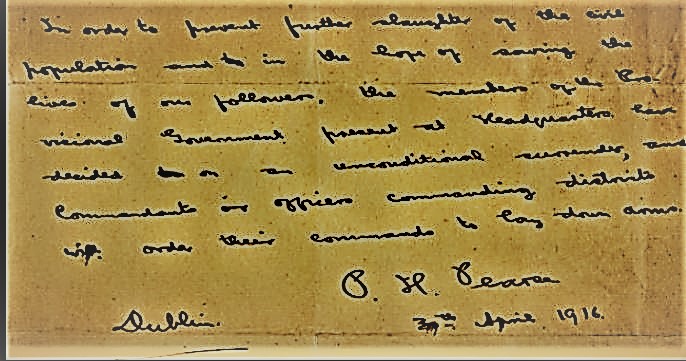 In order to prevent further slaughter of the civil
population and in the hope of saving the
lives of our followers, the members of the Pro-
visional Government present at Headquarters have
decided on an unconditional surrender, and
Commandants or officers commanding districts
will order their commands to lay down arms.
P. H. Pearse
Dublin.
April 1916.